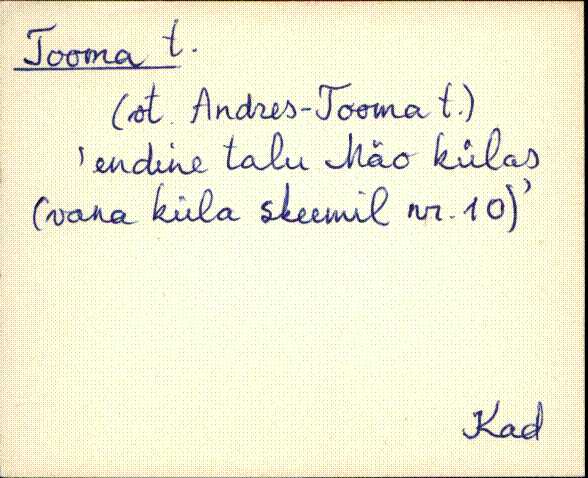 Tooma t.
(vt. Andres-Tooma t.)
'endine talu Mäo külas
(vana küla skeemil nr. 10)'
Kad